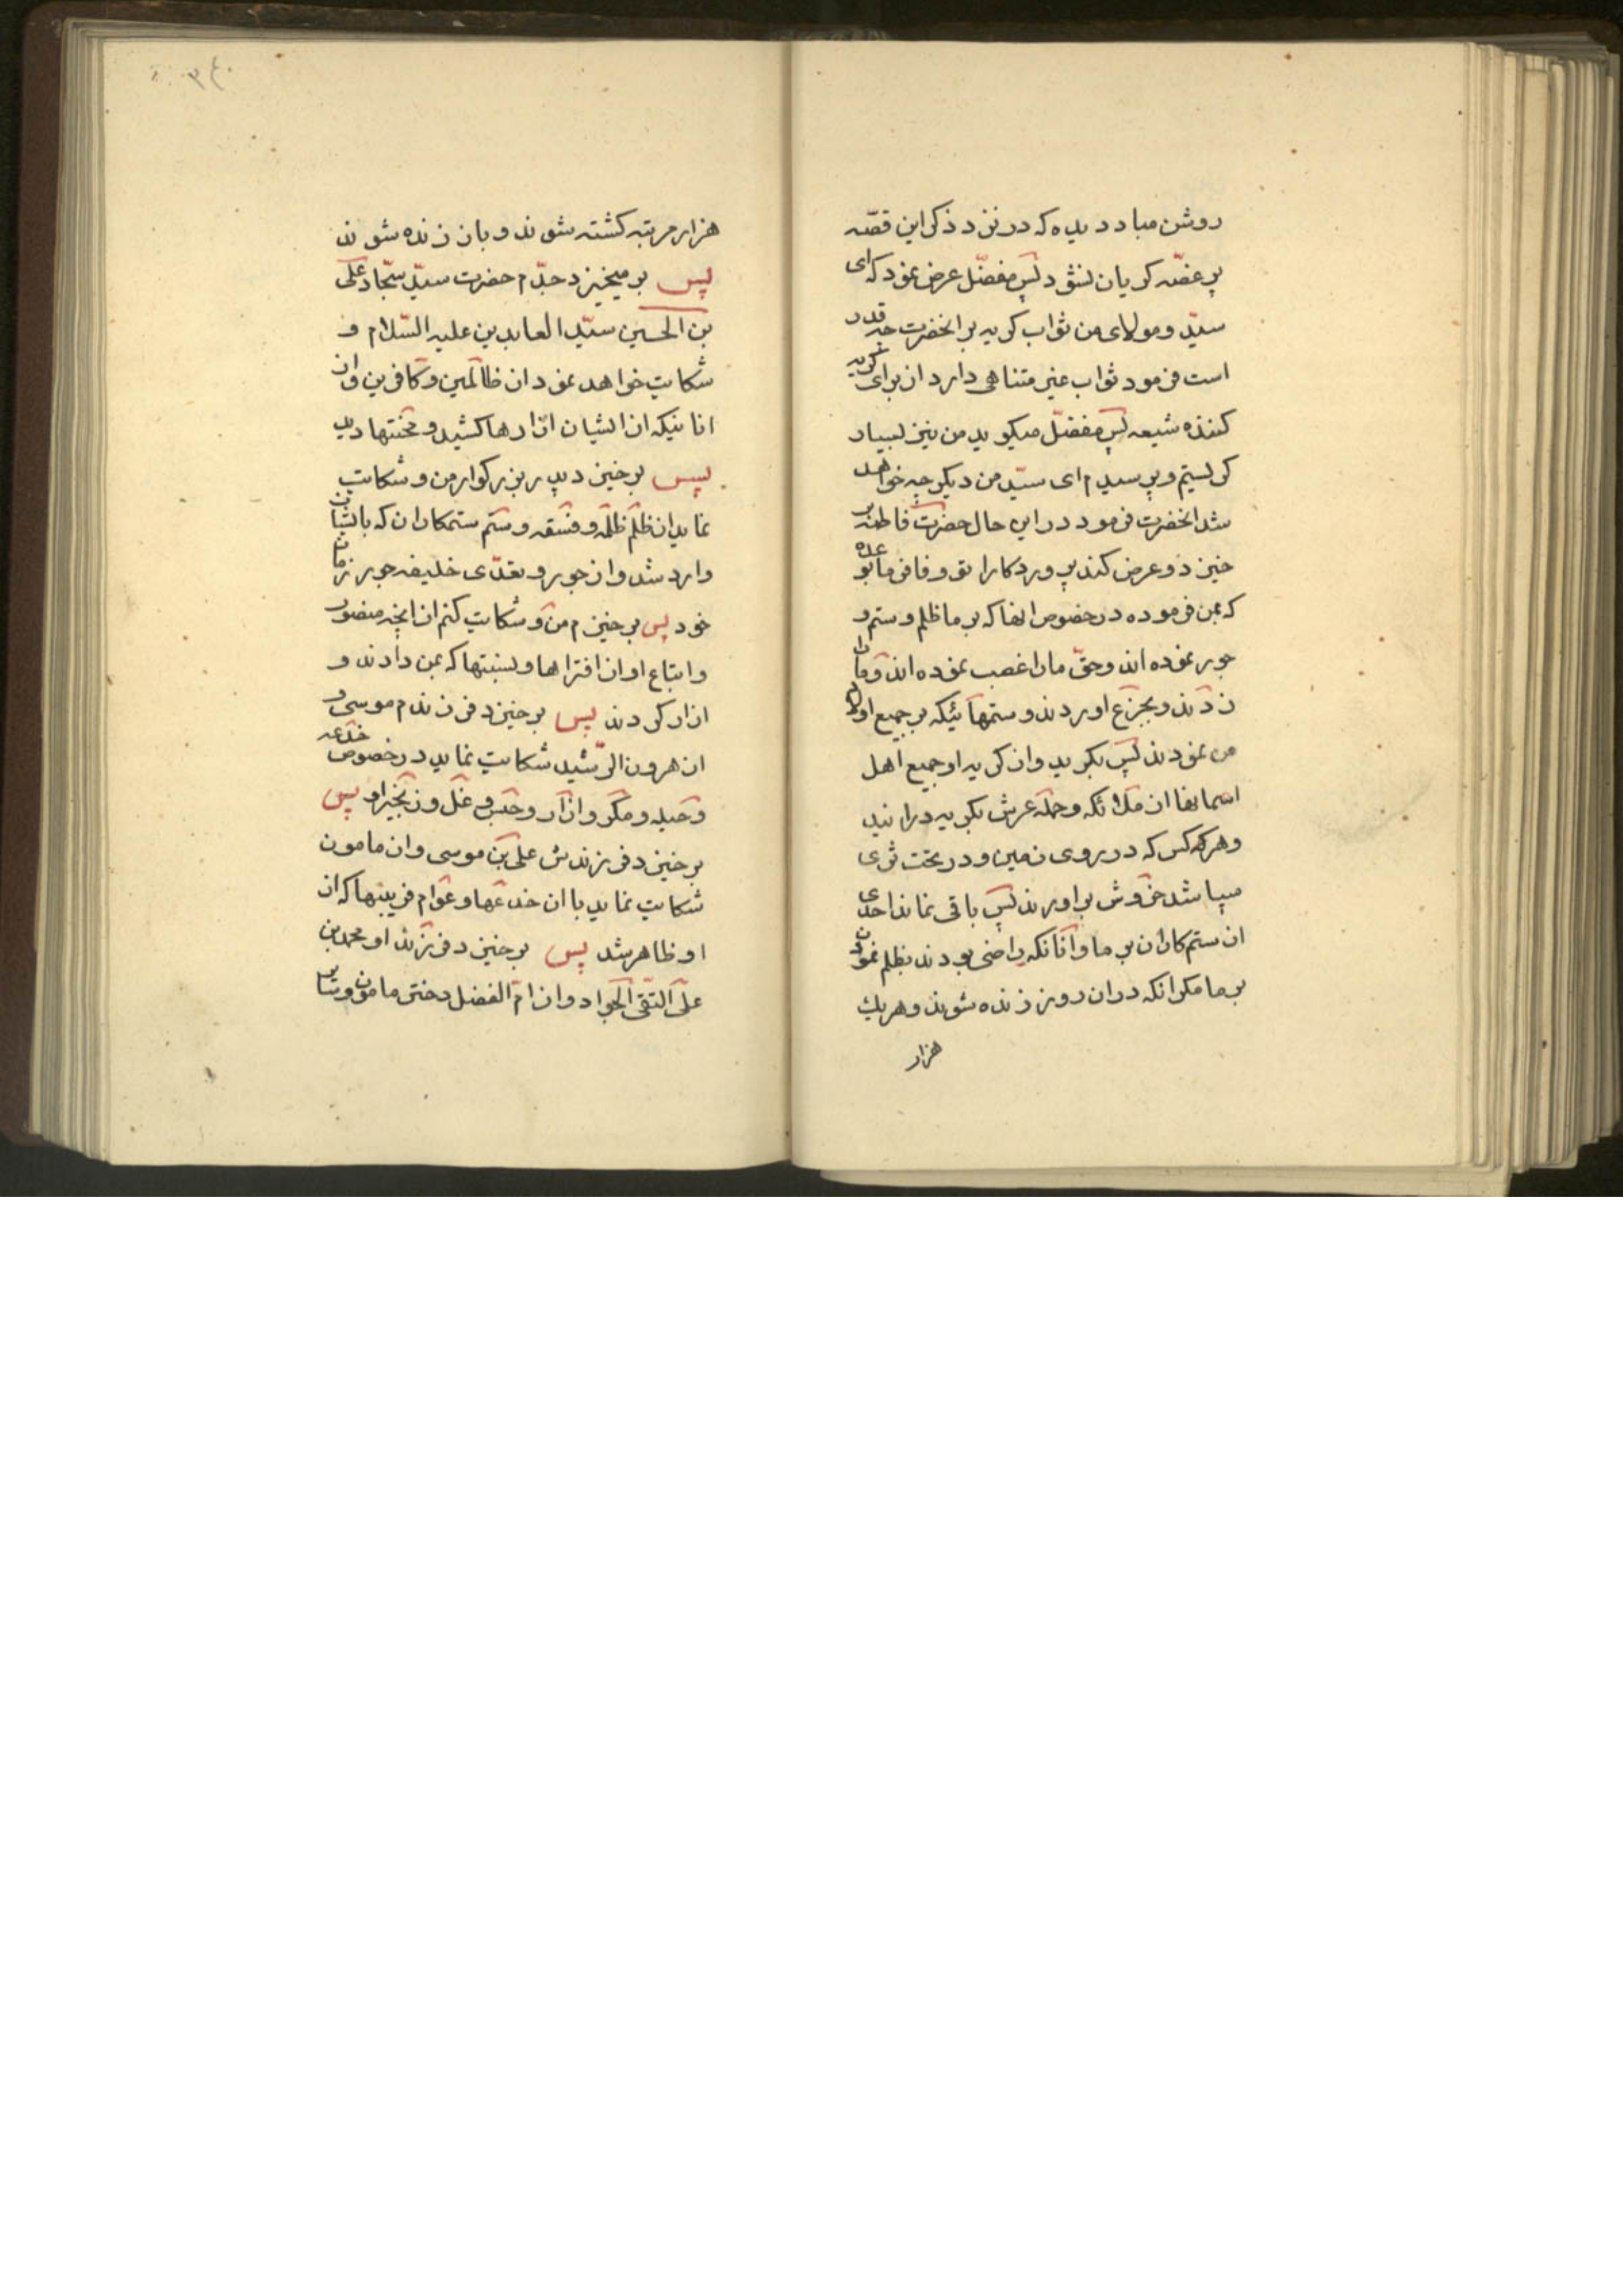 روشن مباد دیده که در نزد ذکر این قصّه
پر غصّه کریان نشود پس مفضّل عرض نمود که ای
سیّد و مولای من ثواب کریه بر انحضرت چه قدر
است فرمود ثواب غیر متناهی دارد از برای کریه
کننده شیعه پس مفضّل میکوید من نیز بسیار
کریستم و پرسیدم ای سیّد من دیکر چه خواهد
شد انحضرت فرمود در این حال حضرت فاطمه بر
خیزد و عرض کند پروردکارا تو وفا فرما بوعده
که بمن فرموده در خصوص انها که بر ما ظلم و ستم و
جور نموده اند و حقّ مارا غصب نموده اند و مارا
زدند و بجزع اوردند و ستمهائیکه بر جمیع اولاد
من نمودند پس بکرید و از کریه او جمیع اهل
اسمانها از ملائکه و حمله عرش بکریه درایند
و هر که کس که در روی زمین و در تحت ثری
میباشد خروش براورند پس باقی نماند احدی
از ستمکاران بر ما و آنانکه راضی بودند بظلم نمودن
بر ما مکر انکه دران روز زنده شوند و هریك
هزار
۳۴۰
هزار مرتبه کشته شوند و باز زنده شوند
پس بر میخیزد جدّم حضرت سیّد سجّاد علی
بن الحسین سیّد العابدین علیه السّلام و
شکایت خواهد نمود از ظالمین و کافرین و از
انانیکه از ایشان ازارها کشید و محنتها دید
پس برخیزد پدر بزرکوار من و شکایت
نماید از ظلم ظلمه و فسقه و ستم ستمکاران که بایشان
وارد شد و از جور و تعدّی خلیفه جور زمان
خود پس برخیزم من و شکایت کنم از انچه منصور
و اتباع او از افتراها و نسبتها که بمن دادند و
ازار کردند پس برخیزد فرزندم موسی و
از هرون الرّشید شکایت نماید در خصوص خدعه
و حیله و مکر و ازار و حبس و غل و زنجیر او پس
برخیزد فرزندش علی بن موسی و از مامون
شکایت نماید با ان خدعها و عوام فریبیها که از
او ظاهر شد پس برخیزد فرزند او محمد بن
علی التقی الجواد و از امّ الفضل دختر مامون و سایر